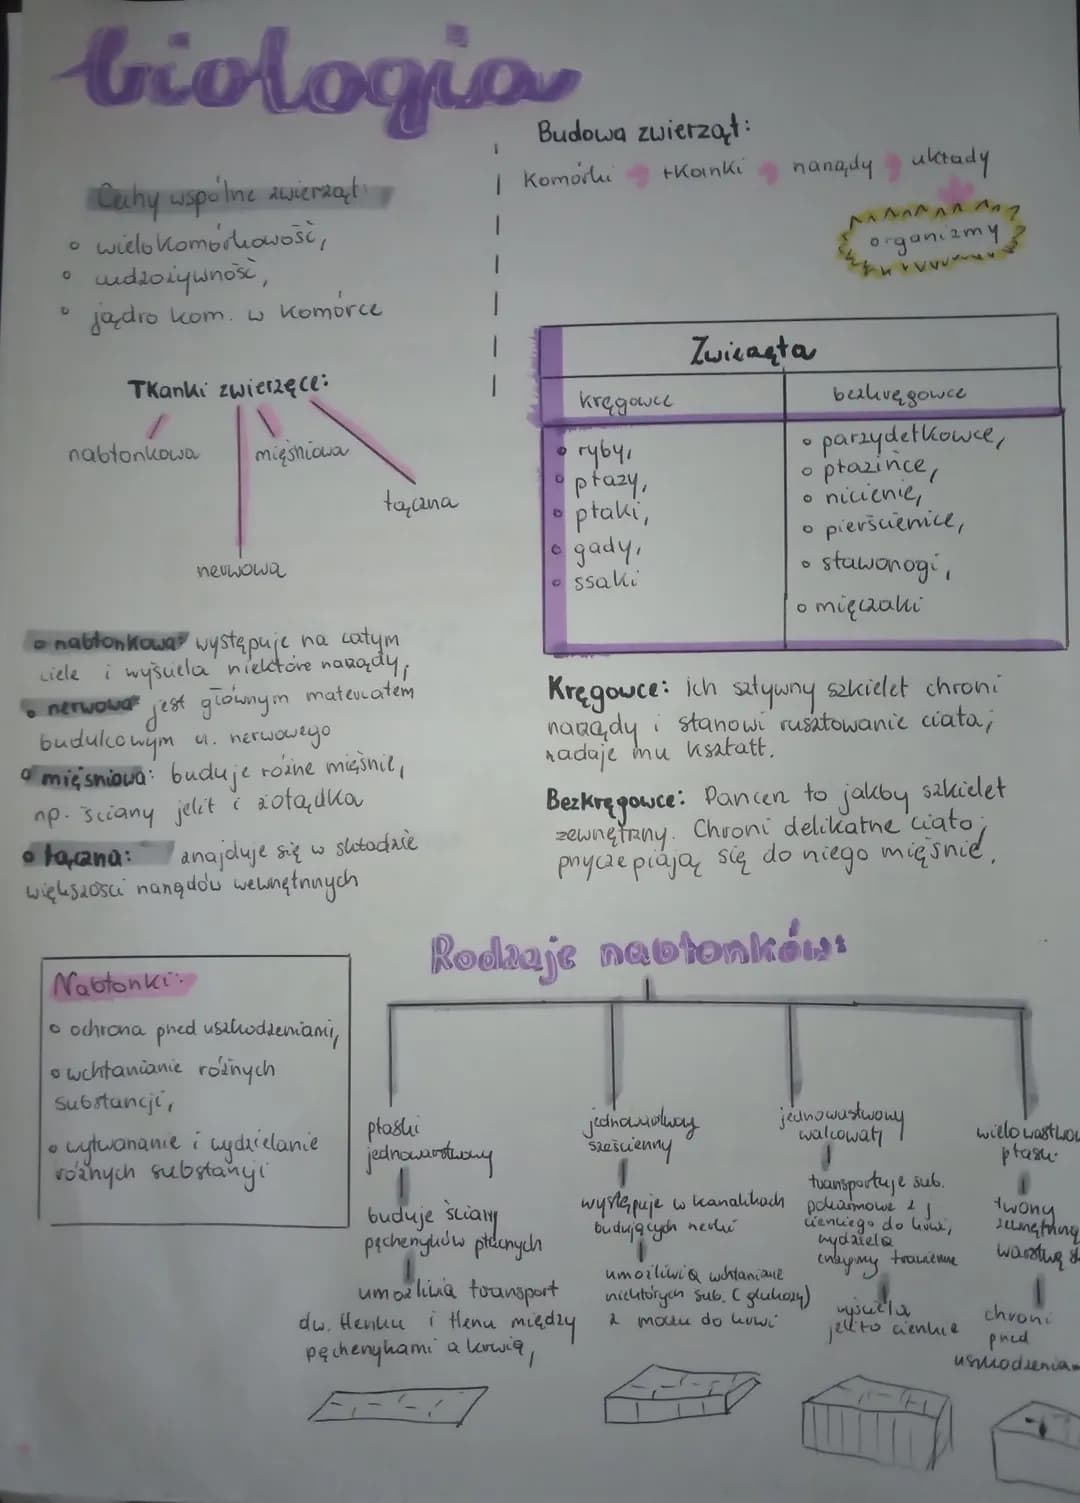 biologia
Cechy wspólne zwierząt:
wielokomórkowość,
cudzożywność,
jądro kom. w komórce
Tkanki zwierzęce:
nabłonkowa
mięśniowa
łączna
nerwowa
nabłonkowa: występuje na całym
ciele i wyściela niektóre narządy,
nerwowa jest głównym materiałem
budulcowym u. nerwowego
mięśniowa: buduje różne mięśnie,
np. ściany jelit i żołądka
łączna: znajduje się w składzie
większości narządów wewnętrznych
Budowa zwierząt:
Komórki tkanki narządy układy
organizmy
Zwierzęta
kręgowce
bezkręgowce
ryby,
płazy,
ptaki,
gady,
ssaki
parzydełkowce,
płazińce,
nicienie,
pierścienice,
stawonogi,
mięczaki
Kręgowce: ich sztywny szkielet chroni
narządy i stanowi rusztowanie ciała,
nadaje mu kształt.
Bezkręgowce: Pancerz to jakby szkielet
zewnętrzny. Chroni delikatne ciało,
przyczepiają się do niego mięśnie.
Nabłonki:
ochrona przed uszkodzeniami,
wchłanianie różnych
substancji,
wytwarzanie i wydzielanie
różnych substancji
Rodzaje nabłonków:
płaski
jednowarstwowy
buduje ściany
pęcherzyków płucnych
umożliwia transport
dw. tlenku i tlenu między
pęcherzykami a krwią,
jednowarstwowy
sześcienny
występuje w kanalikach
budujących nerki
umożliwia wchłanianie
niektórych sub. (glukozy)
z moczu do krwi
jednowastwowy
walcowaty
transportuje sub.
pokarmowe z j
cienkiego do krwi,
wydziela
enzymy trawienne
wyściela
jelito cienkie
wielowastwow
płaski
tworzy
zewnętrzną
warstwę s
chroni
przed
uszkodzeniam